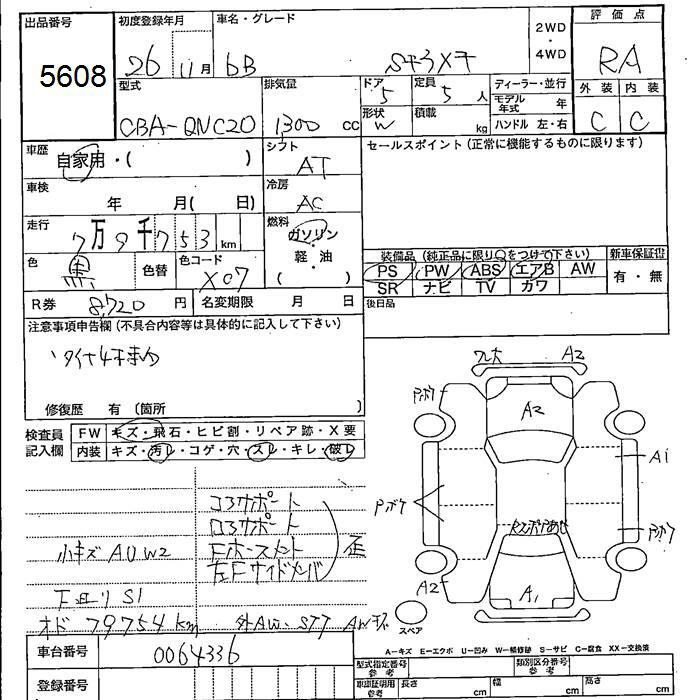 出品番号
5608
初度登録年月
26 11月
車名・グレード
bB
2WD
・
4WD
評価点
RA
型式
CBA-QNC20
排気量
1300 cc
ドア
5
定員
5 人
形状
W
積載
kg
ディーラー・並行
モデル年式 年
ハンドル 左・右
外装 内装
C C
車歴
自家用・( )
シフト
AT
セールスポイント(正常に機能するものに限ります)
車検
年 月( 日)
冷房
AC
走行
7万9千753km
燃料
ガソリン
軽・油
( )
色
黒
色替
色コード
X07
装備品(純正品に限り○をつけて下さい)
PS PW ABS エアB AW
SR ナビ TV カワ
新車保証書
有・無
R券 8,720円
名変期限 月 日
後日品
注意事項申告欄(不具合内容等は具体的に記入して下さい)
修復歴 有 〔箇所
検査員記入欄
FW キズ・飛石・ヒビ割・リペア跡・X要
内装 キズ・汚レ・コゲ・穴・スレ・キレ・破レ
コアサポート
ロアサポート
小キズ AU W2
左Fサイドメンバ
歪
オド 79754km
A2
Pボケ
A2
A1
Pボケ
Pボケ
A2
A1
スペア
車台番号
0064336
A-キズ E-エクボ U-凹み W-補修跡 S-サビ C-腐食 XX-交換済
登録番号
型式指定番号
参考
類別区分番号
参考
車庫証明用
参考
長さ cm
幅 cm
高さ cm